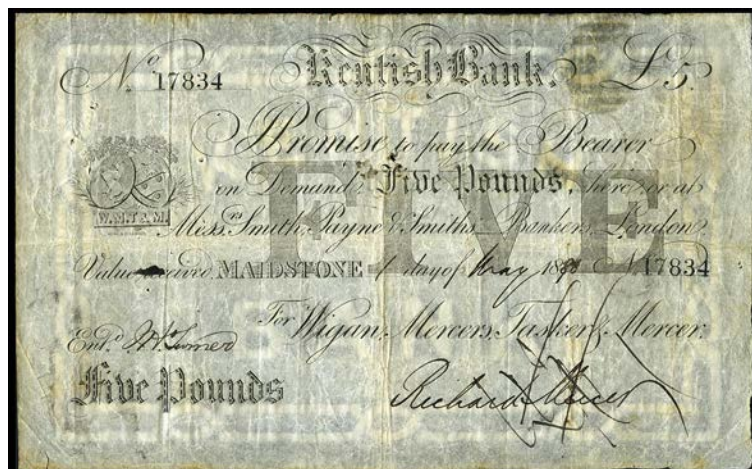 No 17834 Kentish Bank. £5.
I Promise to pay the Bearer
on Demand Five Pounds, here or at
W.M.T.& M.
Messrs Smith, Payne & Smiths Bankers, London
Value received MAIDSTONE 1 day of May 18 No 17834
For Wigan, Mercers, Tasker & Mercer.
Entd W Turner
Five Pounds
Richard Mercer
FIVE